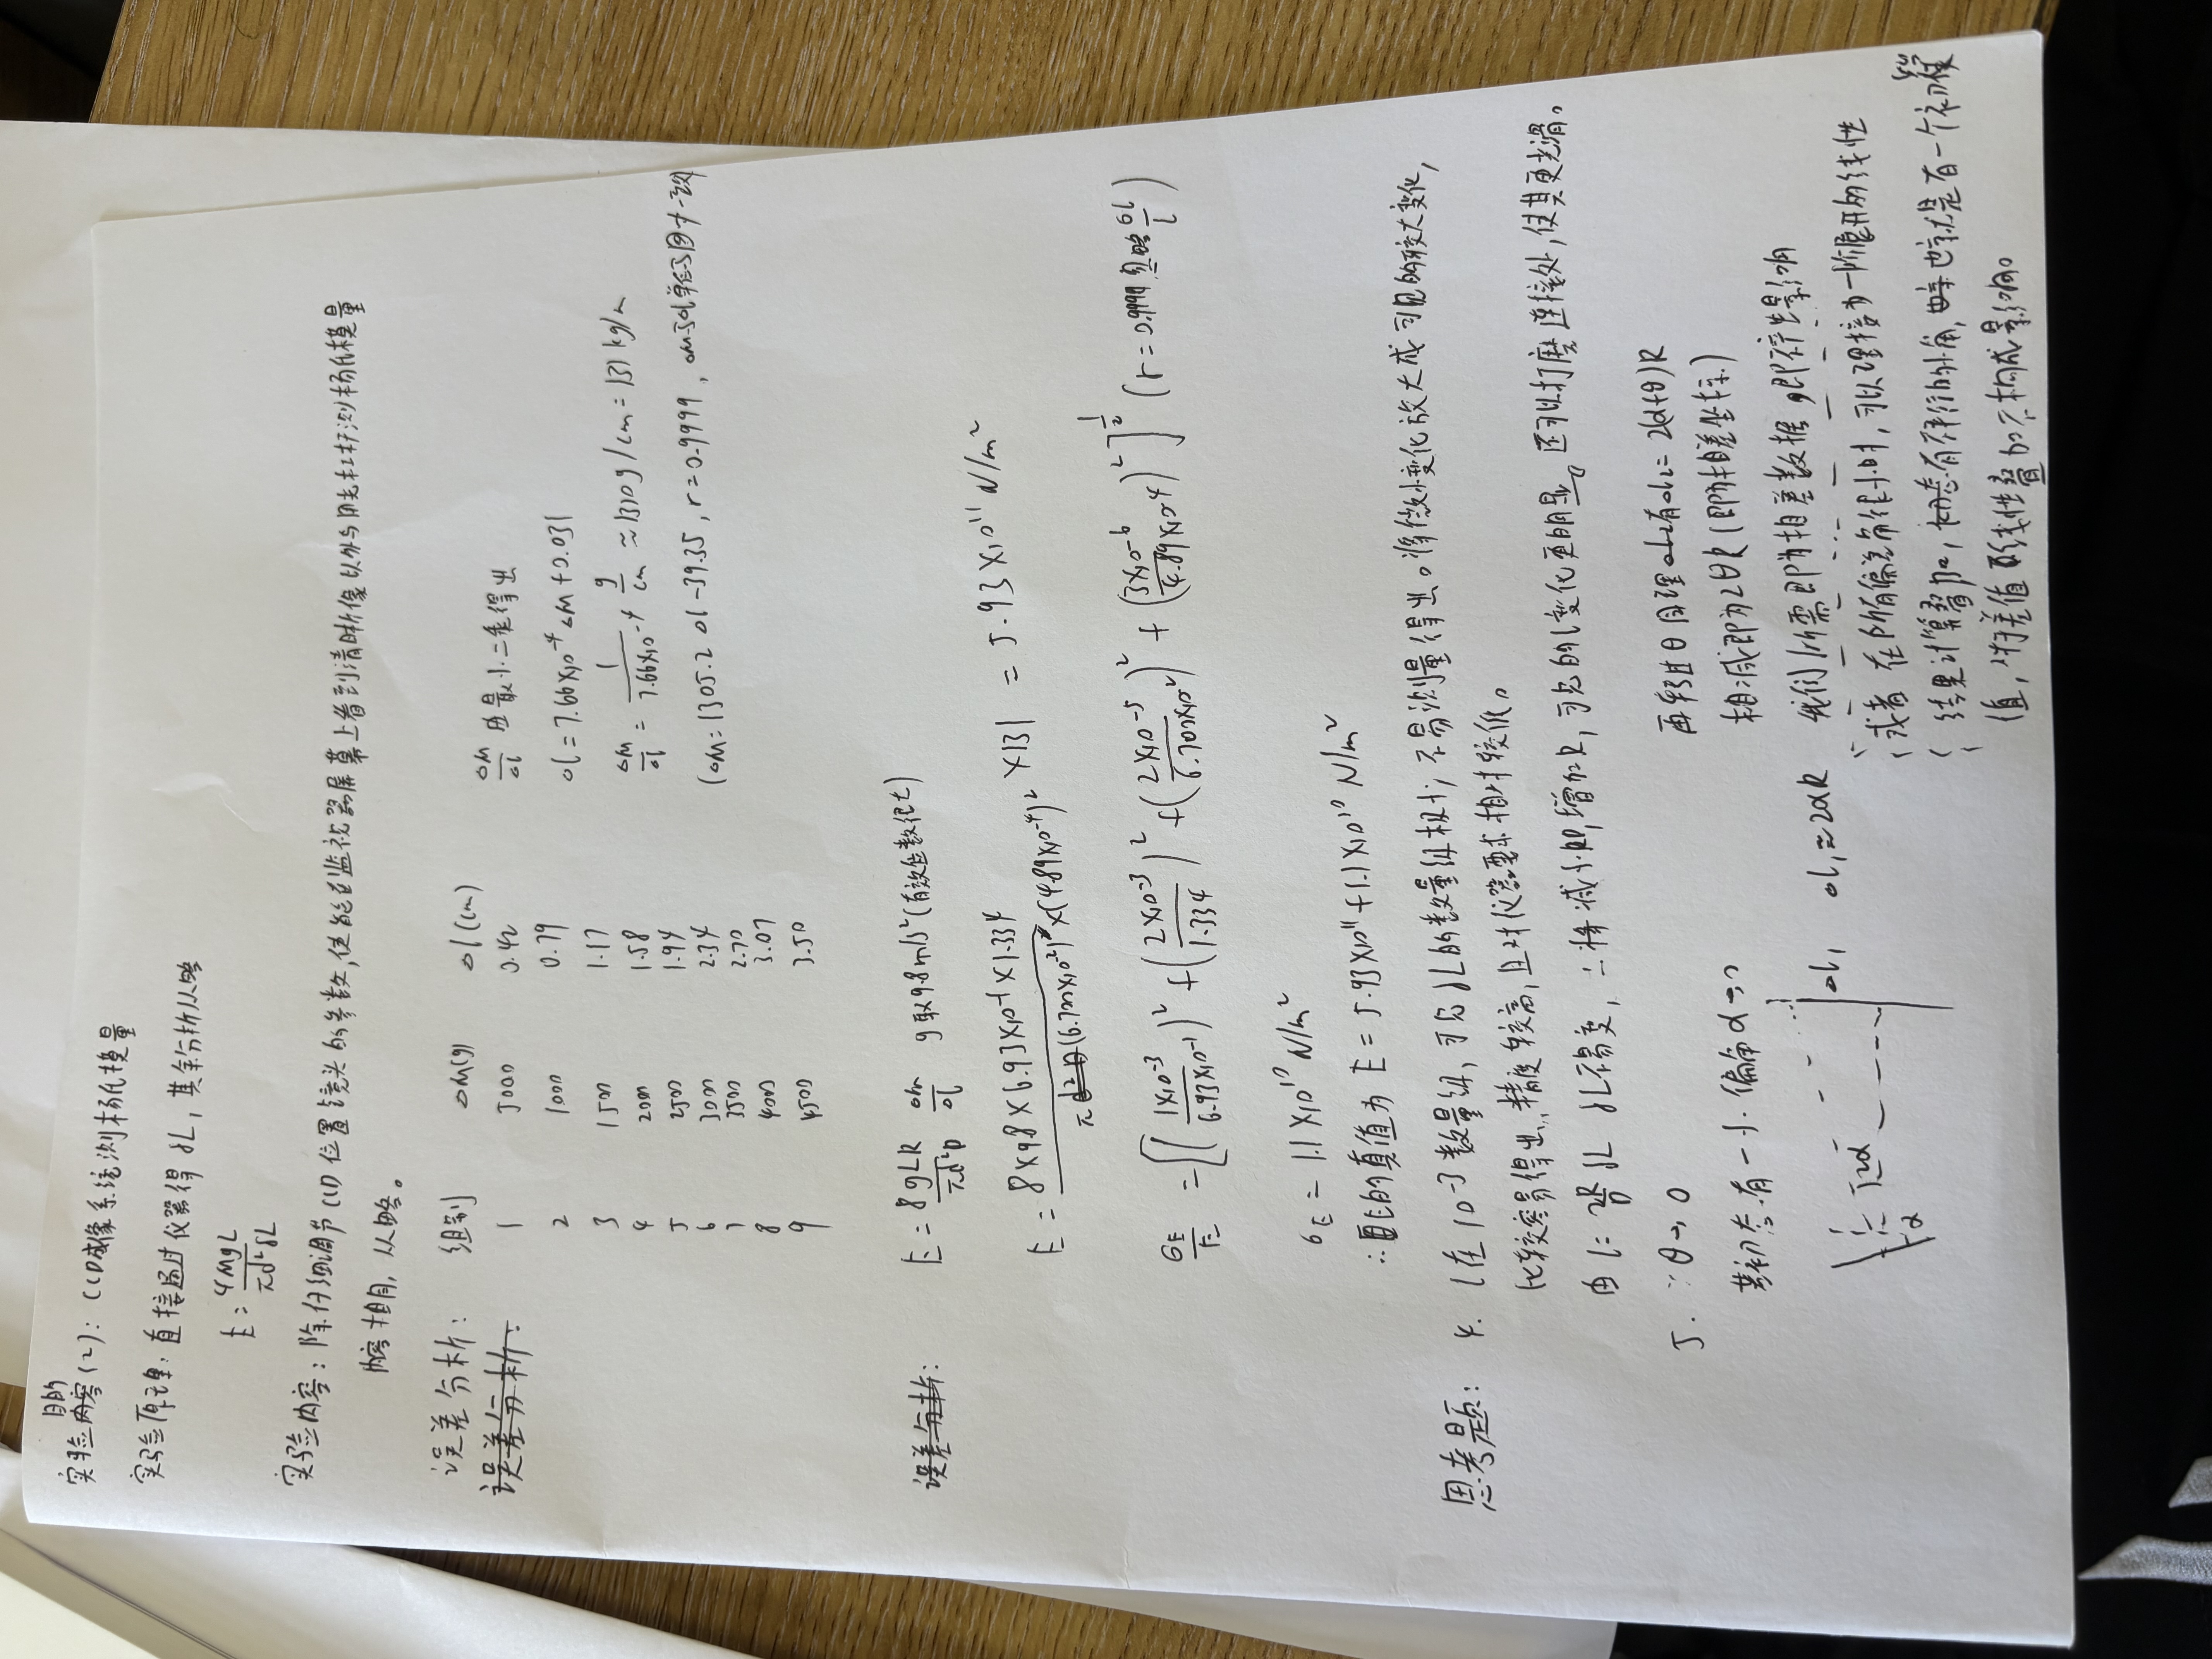 目的
实验内容(2): CCD成像系统测杨氏模量
实验原理: 直接通过仪器得 δL, 其余分析从略
E = 4MgL / πd²δL
实验内容: 除仔细调节CCD位置镜头的参数, 使能在监视器屏幕上看到清晰像以外与用光杠杆测杨氏模量
内容相同, 从略。
误差分析:
误差分析:
组别 ΔM(g) Δl(cm)
1 500 0.42
2 1000 0.79
3 1500 1.17
4 2000 1.58
5 2500 1.94
6 3000 2.34
7 3500 2.70
8 4000 3.07
9 4500 3.50
ΔM/Δl 由最小二乘得出
Δl = 7.66×10⁻⁴ ΔM + 0.031
ΔM/Δl = 1/(7.66×10⁻⁴) g/cm ≈ 1310 g/cm = 131 kg/m
(ΔM = 1305.2 Δl - 39.35, r = 0.9999, ΔM与Δl单位与图中一致)
误差分析:
E = 8gLR/πd²D ΔM/Δl g取9.8m/s² (有效位数很七)
E = 8×9.8×6.93×10⁻¹×1.334 / π(6.700×10⁻²)×(4.89×10⁻⁴)² ×131 = 5.93×10¹¹ N/m²
σE/E = [(1×10⁻³/6.93×10⁻¹)² + (2×10⁻³/1.334)² + (2×10⁻⁵/6.700×10⁻²)² + (3×10⁻⁶/4.89×10⁻⁴)²]^½ (r = 0.9999 忽略 σl/l)
σE = 1.1×10¹⁰ N/m²
∴ E的真值为 E = 5.93×10¹¹ ± 1.1×10¹⁰ N/m²
思考题: 4. l在10⁻³数量级, 可知δL的数量级极小, 不易测量得出。将微小变化放大成可见的较大变化,
比较容易得出, 精度较高, 且对仪器要求相对较低。
由 l = 2R/D δL δL不易变, ∴将D减小即, 增加R, 可知的l变化更明显。还可以打磨连接处, 使其更光滑。
5. ∵ θ→0
若初态有一小偏角α→0
2α
α
Δl₁ Δl₁≈2αR
再转过θ角 Δl₂ = 2(α+θ)R
相减即为2θR (即为相差坐标)
我们所需即为相差数据, 即不产生影响
(或者在所有偏离角很小时, 可以理接为一阶展开的线性
(结果计算叠加, 初态有存在的小角, 也就是有一个初值
值, 作差值 的线性叠加不构成影响。